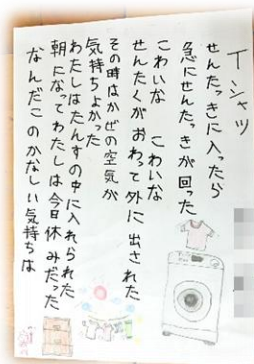 Tーシャツ
せんたっきに入ったら
急にせんたっきが回った
こわいな　こわいな
せんたくがおわって外に出された
その時はかぜの空気が
気持ちよかった
わたしはたんすの中に入れられた
朝になってわたしは今日休みだった
なんだこのかなしい気持ちは